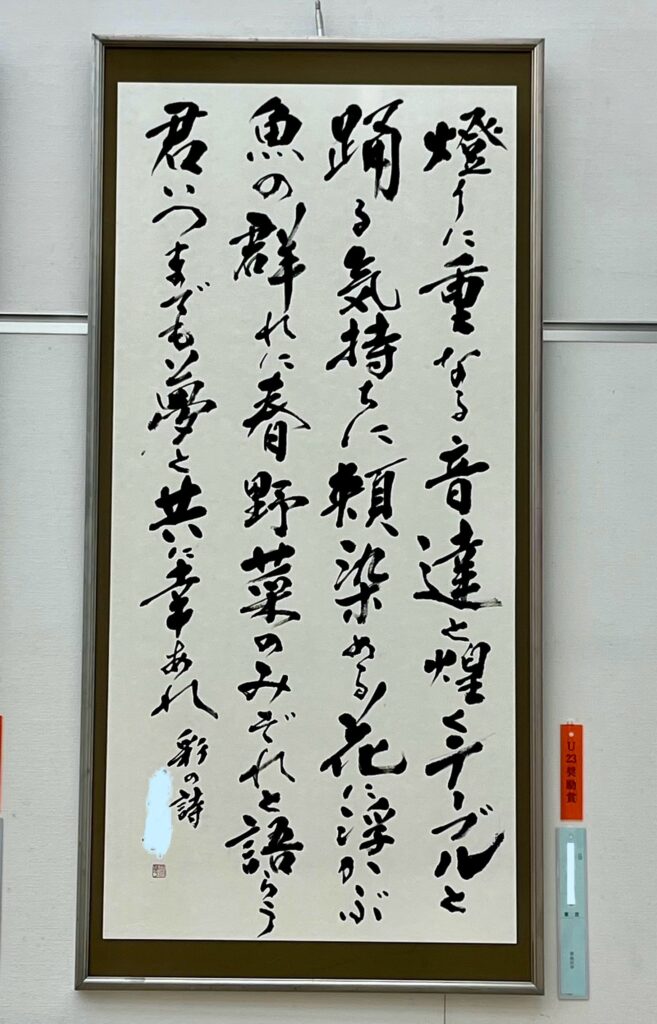 燈りに重なる音達と煌くテーブルと
踊る気持ちに頬染める花に浮かぶ
魚の群れに春野菜のみぞれと語らう
君いつまでも夢と共に幸あれ
彩の詩
U23奨励賞